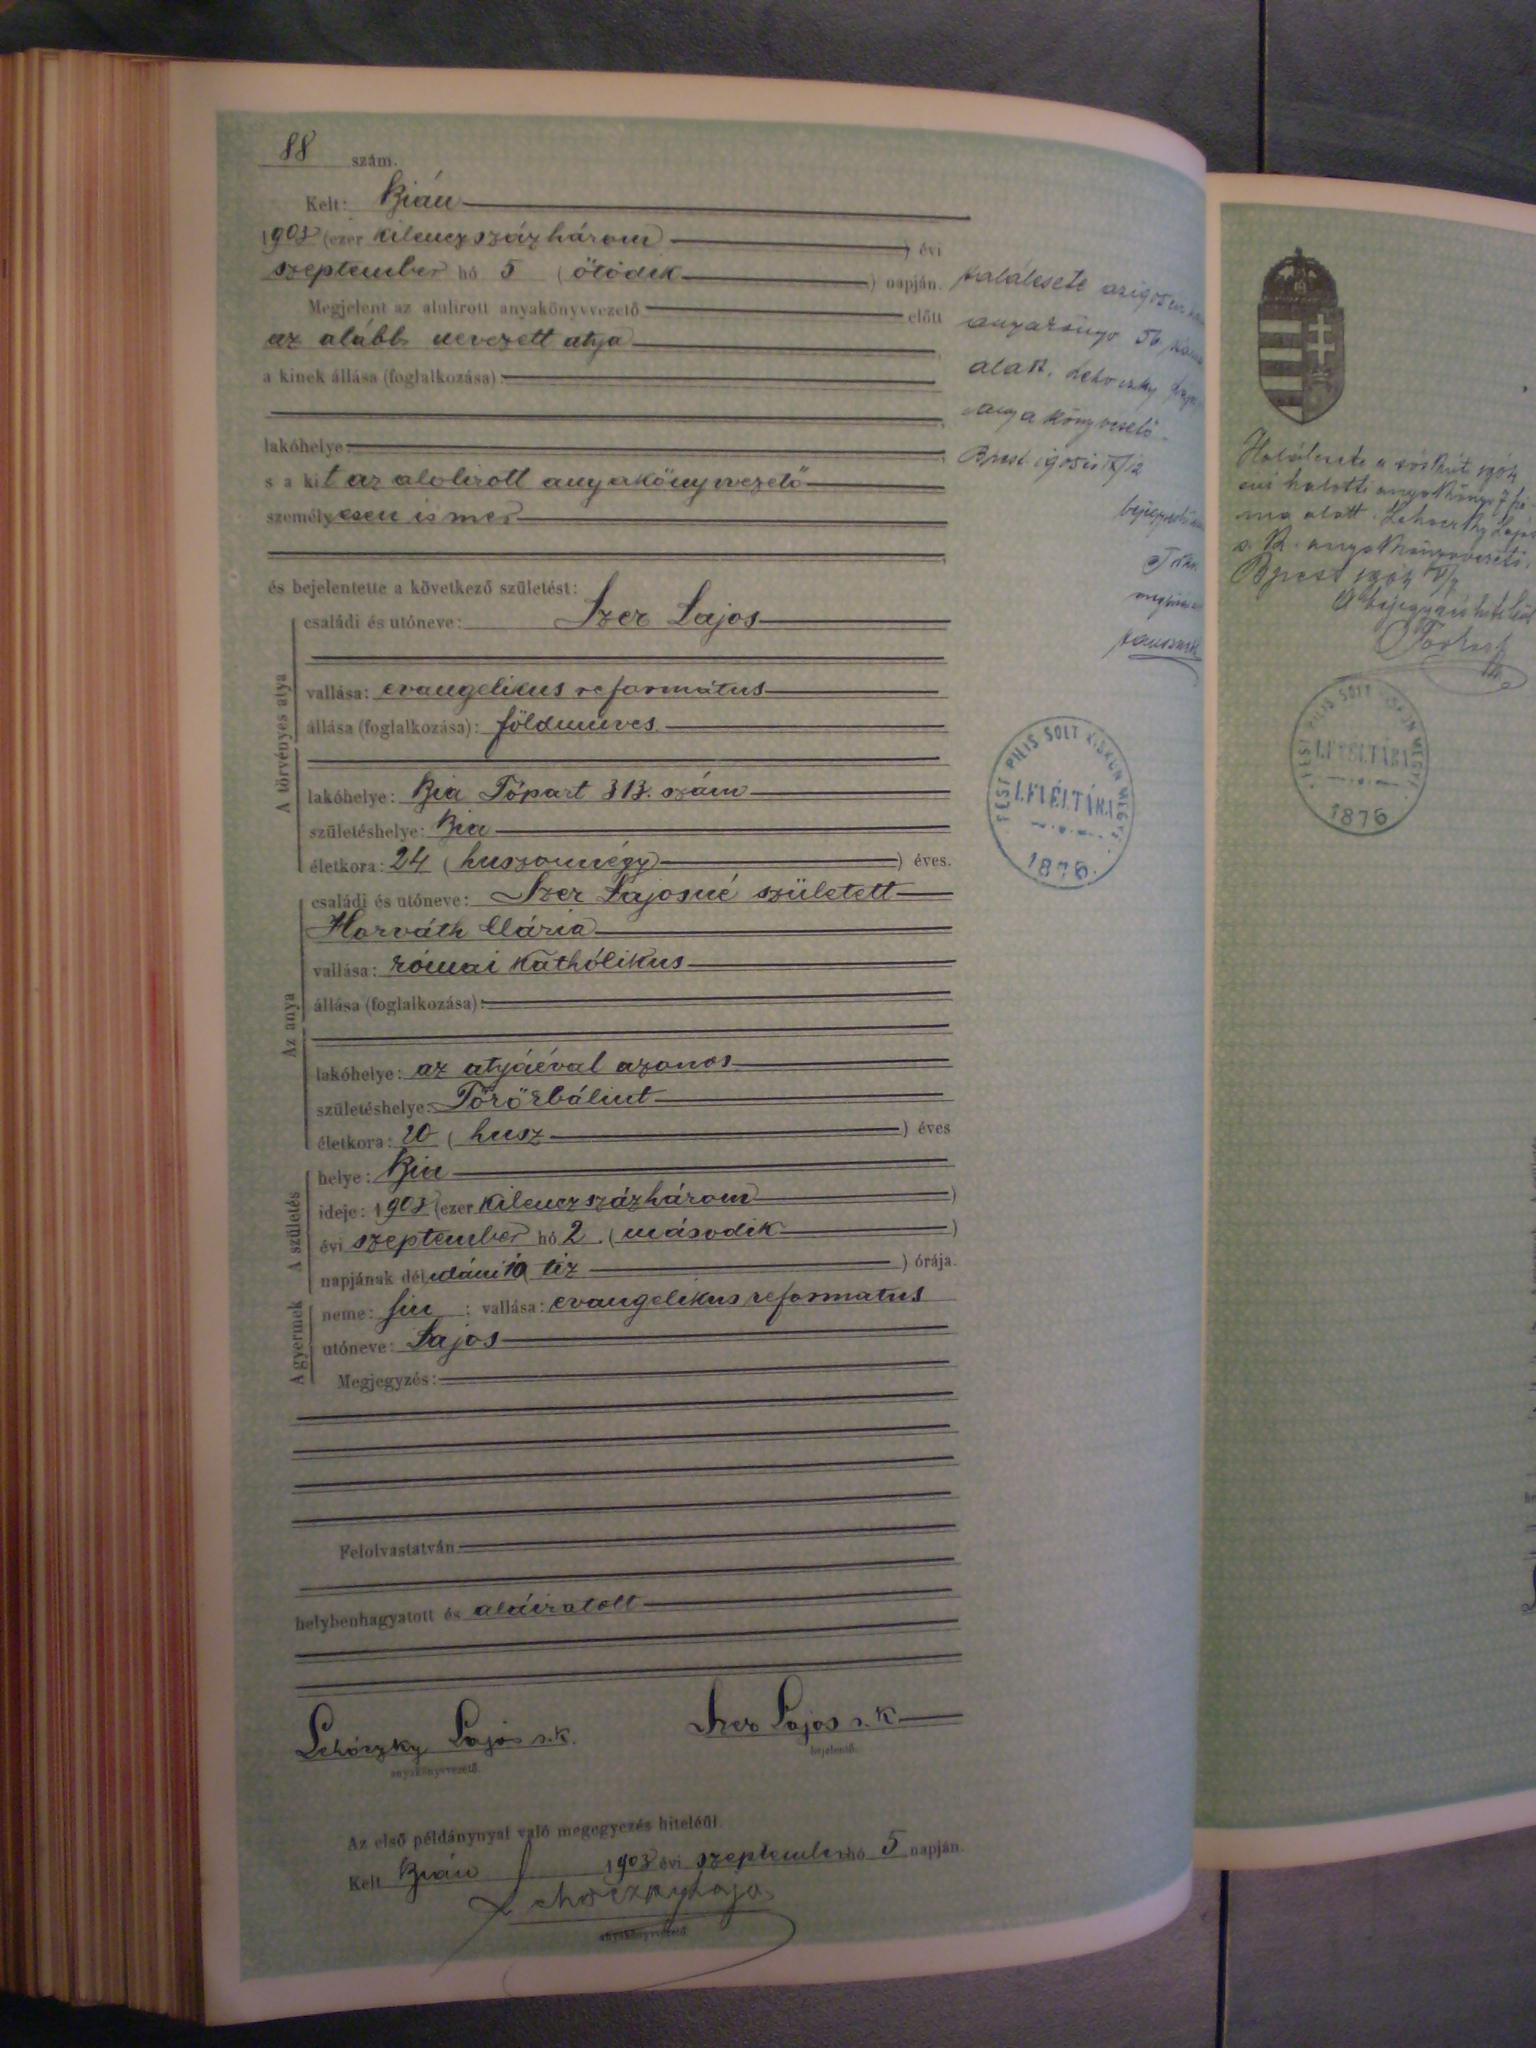 88 szám.
Kelt: Bián
1903 (ezer kilenczszázhárom) évi
szeptember hó 5 (ötödik) napján.
Megjelent az alulirott anyakönyvvezető előtt
az alább nevezett atya
a kinek állása (foglalkozása):
lakóhelye
s a kit az alolirott anyakönyvvezető
személyesen ismer
és bejelentette a következő születést:
A törvényes atya
családi és utóneve: Szer Lajos
vallása: evangelikus református
állása (foglalkozása): földmüves
lakóhelye: Bia Tópart 313. szám
születéshelye: Bia
életkora: 24 (huszonnégy) éves.
Az anya
családi és utóneve: Szer Lajosné született
Horváth Mária
vallása: római kathólikus
állása (foglalkozása):
lakóhelye: az atyáéval azonos
születéshelye: Törökbálint
életkora: 20 (husz) éves
A születés
helye: Bia
ideje: 1903 (ezer kilenczszázhárom)
évi szeptember hó 2. (második)
napjának délutáni 10 tiz ) órája.
A gyermek
neme: fiu ; vallása: evangelikus reformatus
utóneve: Lajos
Megjegyzés:
Felolvastatván
helybenhagyatott és aláiratott
Lehóczky Lajos s.k.
anyakönyvvezető.
Szer Lajos s.k.
bejelentő.
Az első példánynyal való megegyezés hiteléül.
Kelt Bián 1903 évi szeptember hó 5 napján.
Lehoczky Lajos
anyakönyvvezető.
halálesete
56
alatt. Lehoczky
anyakönyvvezető
PEST PILIS SOLT KISKUN MEGYE
LEVÉLTÁRA
1876.
Halálesete a
évi halotti anyakönyv 7
alatt. Lehoczky Lajos
s. k. anyakönyvvezető.
PEST PILIS SOLT KISKUN MEGYE
LEVÉLTÁRA
1876